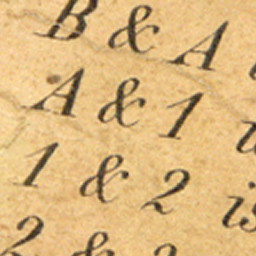 B & A
A & 1
1 & 2 is
2 &